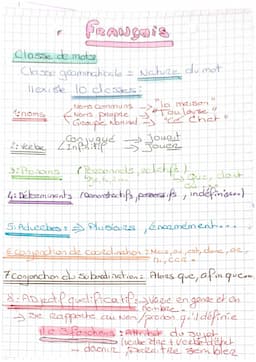 Français
Classe de mots
Classe grammaticale = Nature du mot
Il existe 10 classes:
Noms communs → "la maison"
1: noms Noms propre → "Toulouse"
Groupe Nominal → "Le chat"
Conjugué → Jouait
2: verbe Infinitif → Jouer
(Personnels, relatifs)
→ Que, dont
4: Déterminants (démonstratifs, possessifs, indéfinis...)
5: Adverbes: → Plusieurs, énormément....
6: conjonction de coordination: Mais, ou, est, donc, or, ni, car.
7 Conjonction du subordination: Alors que, afin que...
8: Adjectif qualificatif: varie en genre et en nombre.
→ se rapporte au nom/pronom qu'il définie
Attribut du sujet
(verbe être + verbe d'état
→ devenir, paraître, sembler